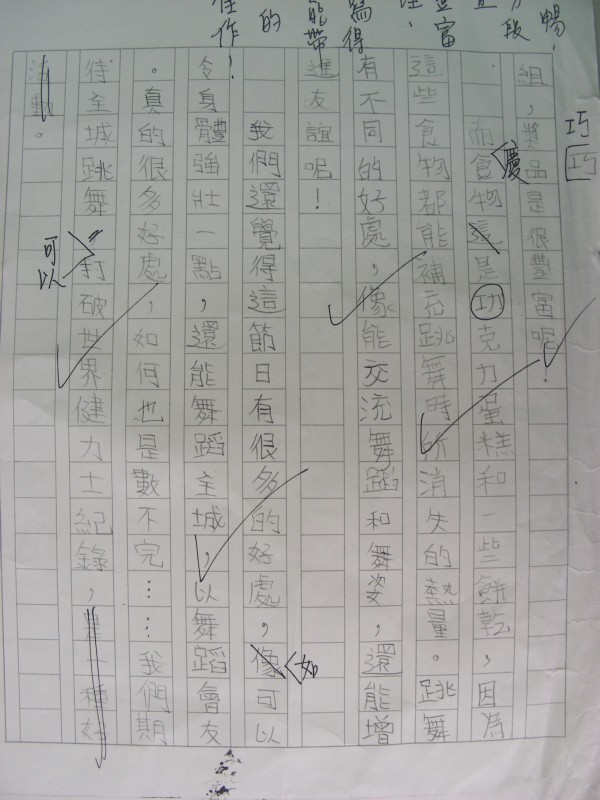 巧
巧
暢！
分段
豐富
寫得
能帶
的
佳作！
組，獎品是很豐富呢！
．而食物這是功克力蛋糕和一些餅乾，因為
慶
這些食物都能補充跳舞時所消失的熱量。跳舞
有不同的好處，像能交流舞蹈和舞姿，還能增
進友誼呢！
我們還覺得這節日有很多的好處，像可以
如
令身體強壯一點，還能舞蹈主城，以舞蹈會友
。真的很多好處，如何也是數不完……我們期
待主城跳舞打破世界健力士紀錄，一種好
可以
活動。